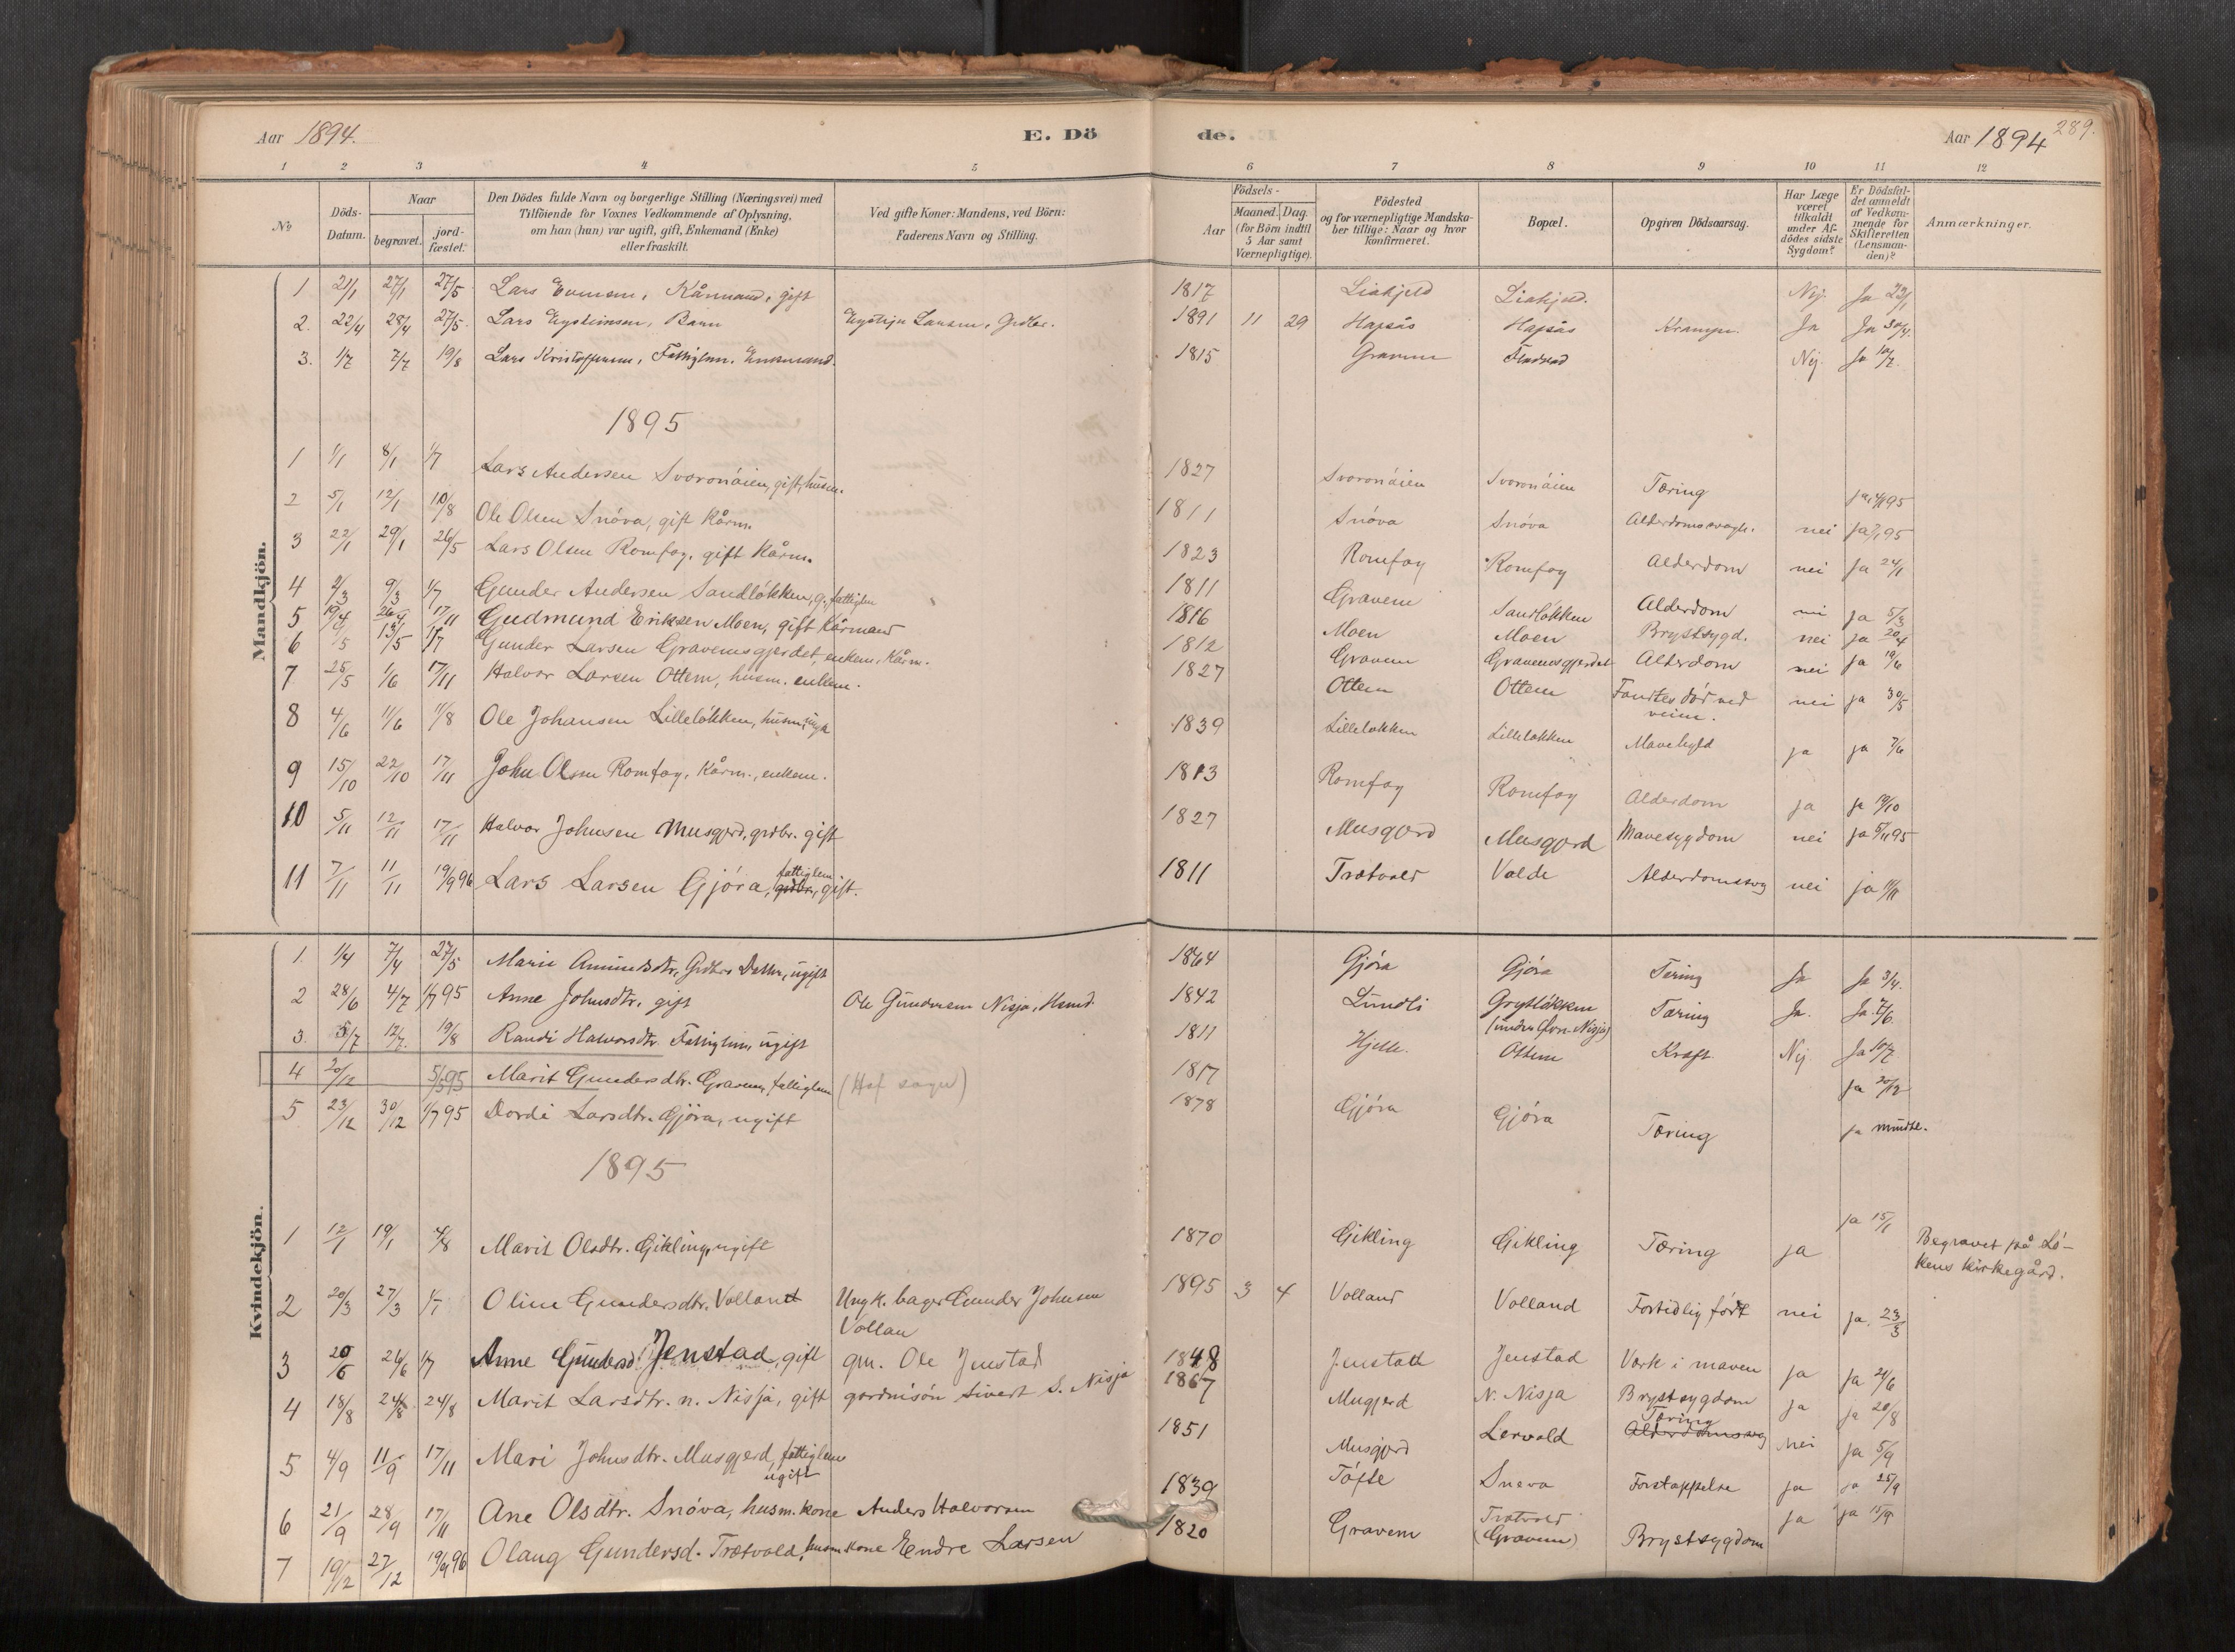 Aar 1894.
E. Döde.
Aar 1894
289.
1 2 3 4 5 6 7 8 9 10 11 12
No
Döds-Datum.
Naar
begravet.
jord-fæstet.
Den Dödes fulde Navn og borgerlige Stilling (Næringsvei) med
Tilföiende for Voxnes Vedkommende af Oplysning,
om han (hun) var ugift, gift, Enkemand (Enke)
eller fraskilt.
Ved gifte Koner: Mandens, ved Börn:
Faderens Navn og Stilling.
Födsels-
Aar
Maaned.
Dag.
(for Börn indtil
5 Aar samt
Værnepligtige).
Födested
og for værnepligtige Mandska-
ber tillige: Naar og hvor
konfirmeret.
Bopæl.
Opgiven Dödsaarsag.
Har Læge
været
tilkaldt
under Af-
dödes sidste
Sygdom?
Er Dödsfal-
det anmeldt
af Vedkom-
mende for
Skifteretten
(Lensman-
den)?
Anmærkninger.
Mandkjön.
1 21/1 27/1 27/5 Lars Kårmand, gift 1817 Liahjeld Liahjeld. Nej. Ja 23/1
2. 22/4 28/4 27/5. Lars Eysteinsen, Barn Grdbr. 1891 11 29 Hafsås Hafsås Krampe. Ja Ja 30/4.
3. 1/7 7/7 19/8 Lars Kristoffersen, Fattiglem. Enkemand. 1815 Gravem Nej. Ja 10/7.
1895
1 1/1 8/1 1/7 Lars Andersen Svoronöien, gift, husm. 1827 Svoronöien Svoronöien Tæring ja 4/1 95
2 5/1 12/1 10/8 Ole Olsen Snöva, gift Kårm. 1811 Snöva Snöva Alderdomssvagh. nei ja 7/1 95
3 22/1 29/1 26/5 Lars Olsen Romfog, gift Kårm. 1823 Romfog Romfog Alderdom nei ja 24/1
4 2/3 9/3 1/7 Gunder Andersen Sandlökken, g. fattiglem 1811 Gravem Sandlökken Alderdom nei ja 5/3
5 19/4 26/4 17/11 Gudmund Eriksen Moen, gift Kårmand 1816 Moen Moen Brystsygd. nei ja 20/4
6 13/5 1/7 Gunder Larsen Gravemsgjerdet, enkem. Kårm. 1812 Gravem Gravemsgjerdet Alderdom nei ja 19/6
7 25/5 1/6 17/11 Halvor Larsen Ottem, husm. enkem. 1827 Ottem Ottem Fandtes död ved veien. nei ja 30/5
8 4/6 11/6 11/8 Ole Johansen Lillelökken, husm., ungk 1839 Lillelökken Lillelökken ja ja 7/6
9 15/10 22/10 17/11 John Olsen Romfog, Kårm., enkem. 1813 Romfog Romfog Alderdom ja ja 19/10
10 5/11 12/11 17/11 Halvor Johnsen Musgjerd, grdbr. gift 1827 Musgjerd Musgjerd Mavesygdom nei ja 6/11 95
11 7/11 11/11 19/9 96 Lars Larsen Gjöra, fattiglem gift. 1811 Trætvold Volde Alderdomssvag nei ja 11/11
Kvindekjön.
1. 1/4 7/4 27/5 Marie Amundsdtr, Grdbrs Datter, ugift 1864 Gjöra Gjöra Tæring Ja Ja 3/4.
2 28/6 4/7 1/7 95 Anne Johnsdtr, gift Ole Gundersen Nisja, Hsmd. 1842 Lundli Grytlökken (under Övre-Nisja) Tæring Ja. Ja
3. 5/7 12/7. 19/8 Randi Halvorsdtr. Fattiglem, ugift 1811 Hjelle. Ottem Kræft Nej. Ja 10/7
4 20/12 5/5 95 Marit Gundersdtr. Gravem, fattiglem (Hof sogn) 1817 ja 20/12
5 23/12 30/12 1/7 95 Dordi Larsdtr. Gjöra, ugift 1878 Gjöra Gjöra Tæring ja mundtl.
1895
1 12/1 19/1 4/8 Marit Olsdtr. Gikling, ugift 1870 Gikling Gikling Tæring ja ja 15/1 Begravet på Lö-
kens kirkegård.
2 20/3 27/3 Oline Gundersdtr. Volland Ungk. bager Gunder Johnsen
Vollan 1895 3 4 Volland Volland Fortidlig født nei ja. 23/3
3 20/6 26/6 1/7 Anne Gundersd. Jenstad, gift gm. Ole Jenstad 1848 Jenstad Jenstad Værk i maven ja ja 21/6
4 18/8 24/8 24/8 Marit Larsdtr. n. Nisja, gift gardmsön Sivert S. Nisja 1867 Musgjerd N. Nisja Brystsygdom ja ja 20/8
5 4/9 11/9 17/11 Mari Johnsdtr. Musgjerd, fattiglem ugift 1851 Musgjerd Lervold Tæring Alderdomssvag nei ja 5/9
6 21/9 28/9 17/11 Ane Olsdtr. Snöva, husm. kone Anders Halvorsen 1839 Töfte Snöva Forstoppelse ja ja 25/9
7 19/12 27/12 19/9 96 Olaug Gundersd. Trætvold, husm kone Endre Larsen 1820 Gravem Trætvold (Gravem) Brystsygdom ja ja 15/9